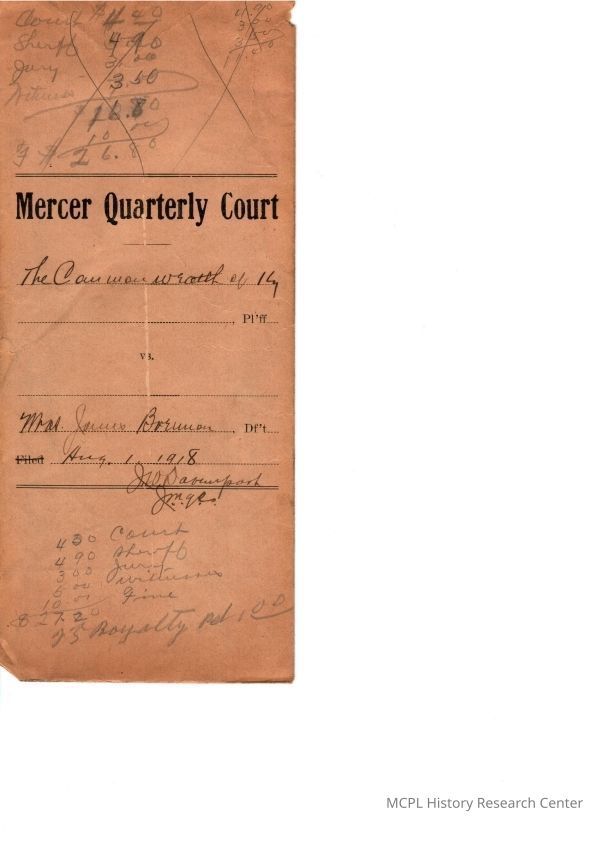 Court $ 4 40
Sheriff 4 90
Jury 3.00
Witness 3.50
$ 16.80
10 00
$ 26.80
4.90
3.00
3.50
Mercer Quarterly Court
The Commonwealth of Ky
, Pl'ff.
vs.
Mrs. James Brennan , Df't.
Filed Aug. 1 1918
JW Davenport
J.M.Q.C.
4 30 Court
4 90 Sheriff
3 00 Jury
5 00 witnesses
10.00 Fine
$ 27.20
25 Royalty pd 1 00
MCPL History Research Center